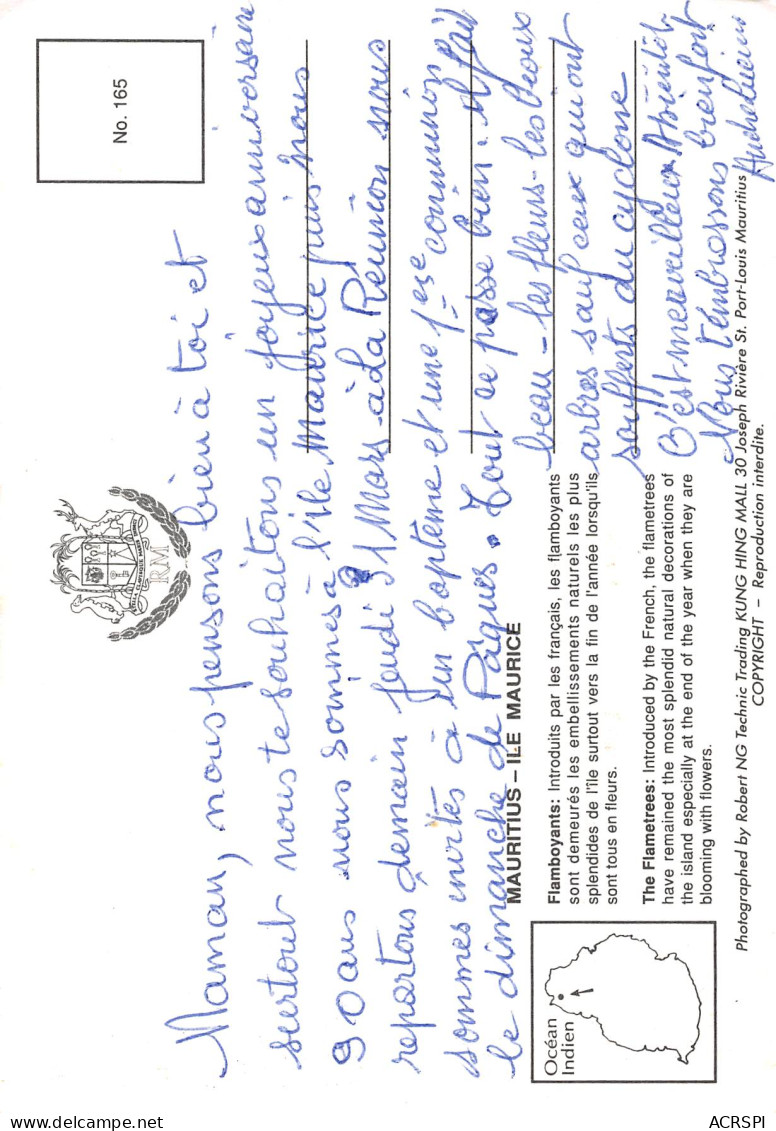 No. 165
RM
Maman, nous pensons bien à toi et
surtout nous te souhaitons un joyeux anniversaire
90 ans nous sommes à l'île Maurice puis nous
repartons demain jeudi 31 Mars à La Réunion nous
sommes invités à un baptême et une 1ère communion
le dimanche de Pâques. Tout se passe bien. Il fait
beau - les fleurs - les beaux
arbres sauf ceux qui ont
soufferts du cyclone
C'est merveilleux. A bientôt.
Nous t'embrassons bien fort
MAURITIUS – ILE MAURICE
Flamboyants: Introduits par les français, les flamboyants
sont demeurés les embellissements naturels les plus
splendides de l'île surtout vers la fin de l'année lorsqu'ils
sont tous en fleurs.
The Flametrees: Introduced by the French, the flametrees
have remained the most splendid natural decorations of
the island especially at the end of the year when they are
blooming with flowers.
Océan
Indien
Photographed by Robert NG Technic Trading KUNG HING MALL 30 Joseph Rivière St. Port-Louis Mauritius
COPYRIGHT – Reproduction interdite.
delcampe.net
ACRSPI